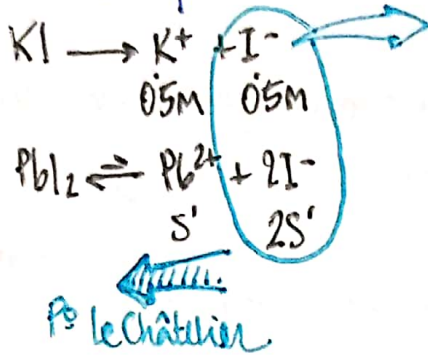 KI ⟶ K⁺ + I⁻
0'5M 0'5M
PbI₂ ⇌ Pb²⁺ + 2I⁻
S' 2S'
Pº Le Châtelier